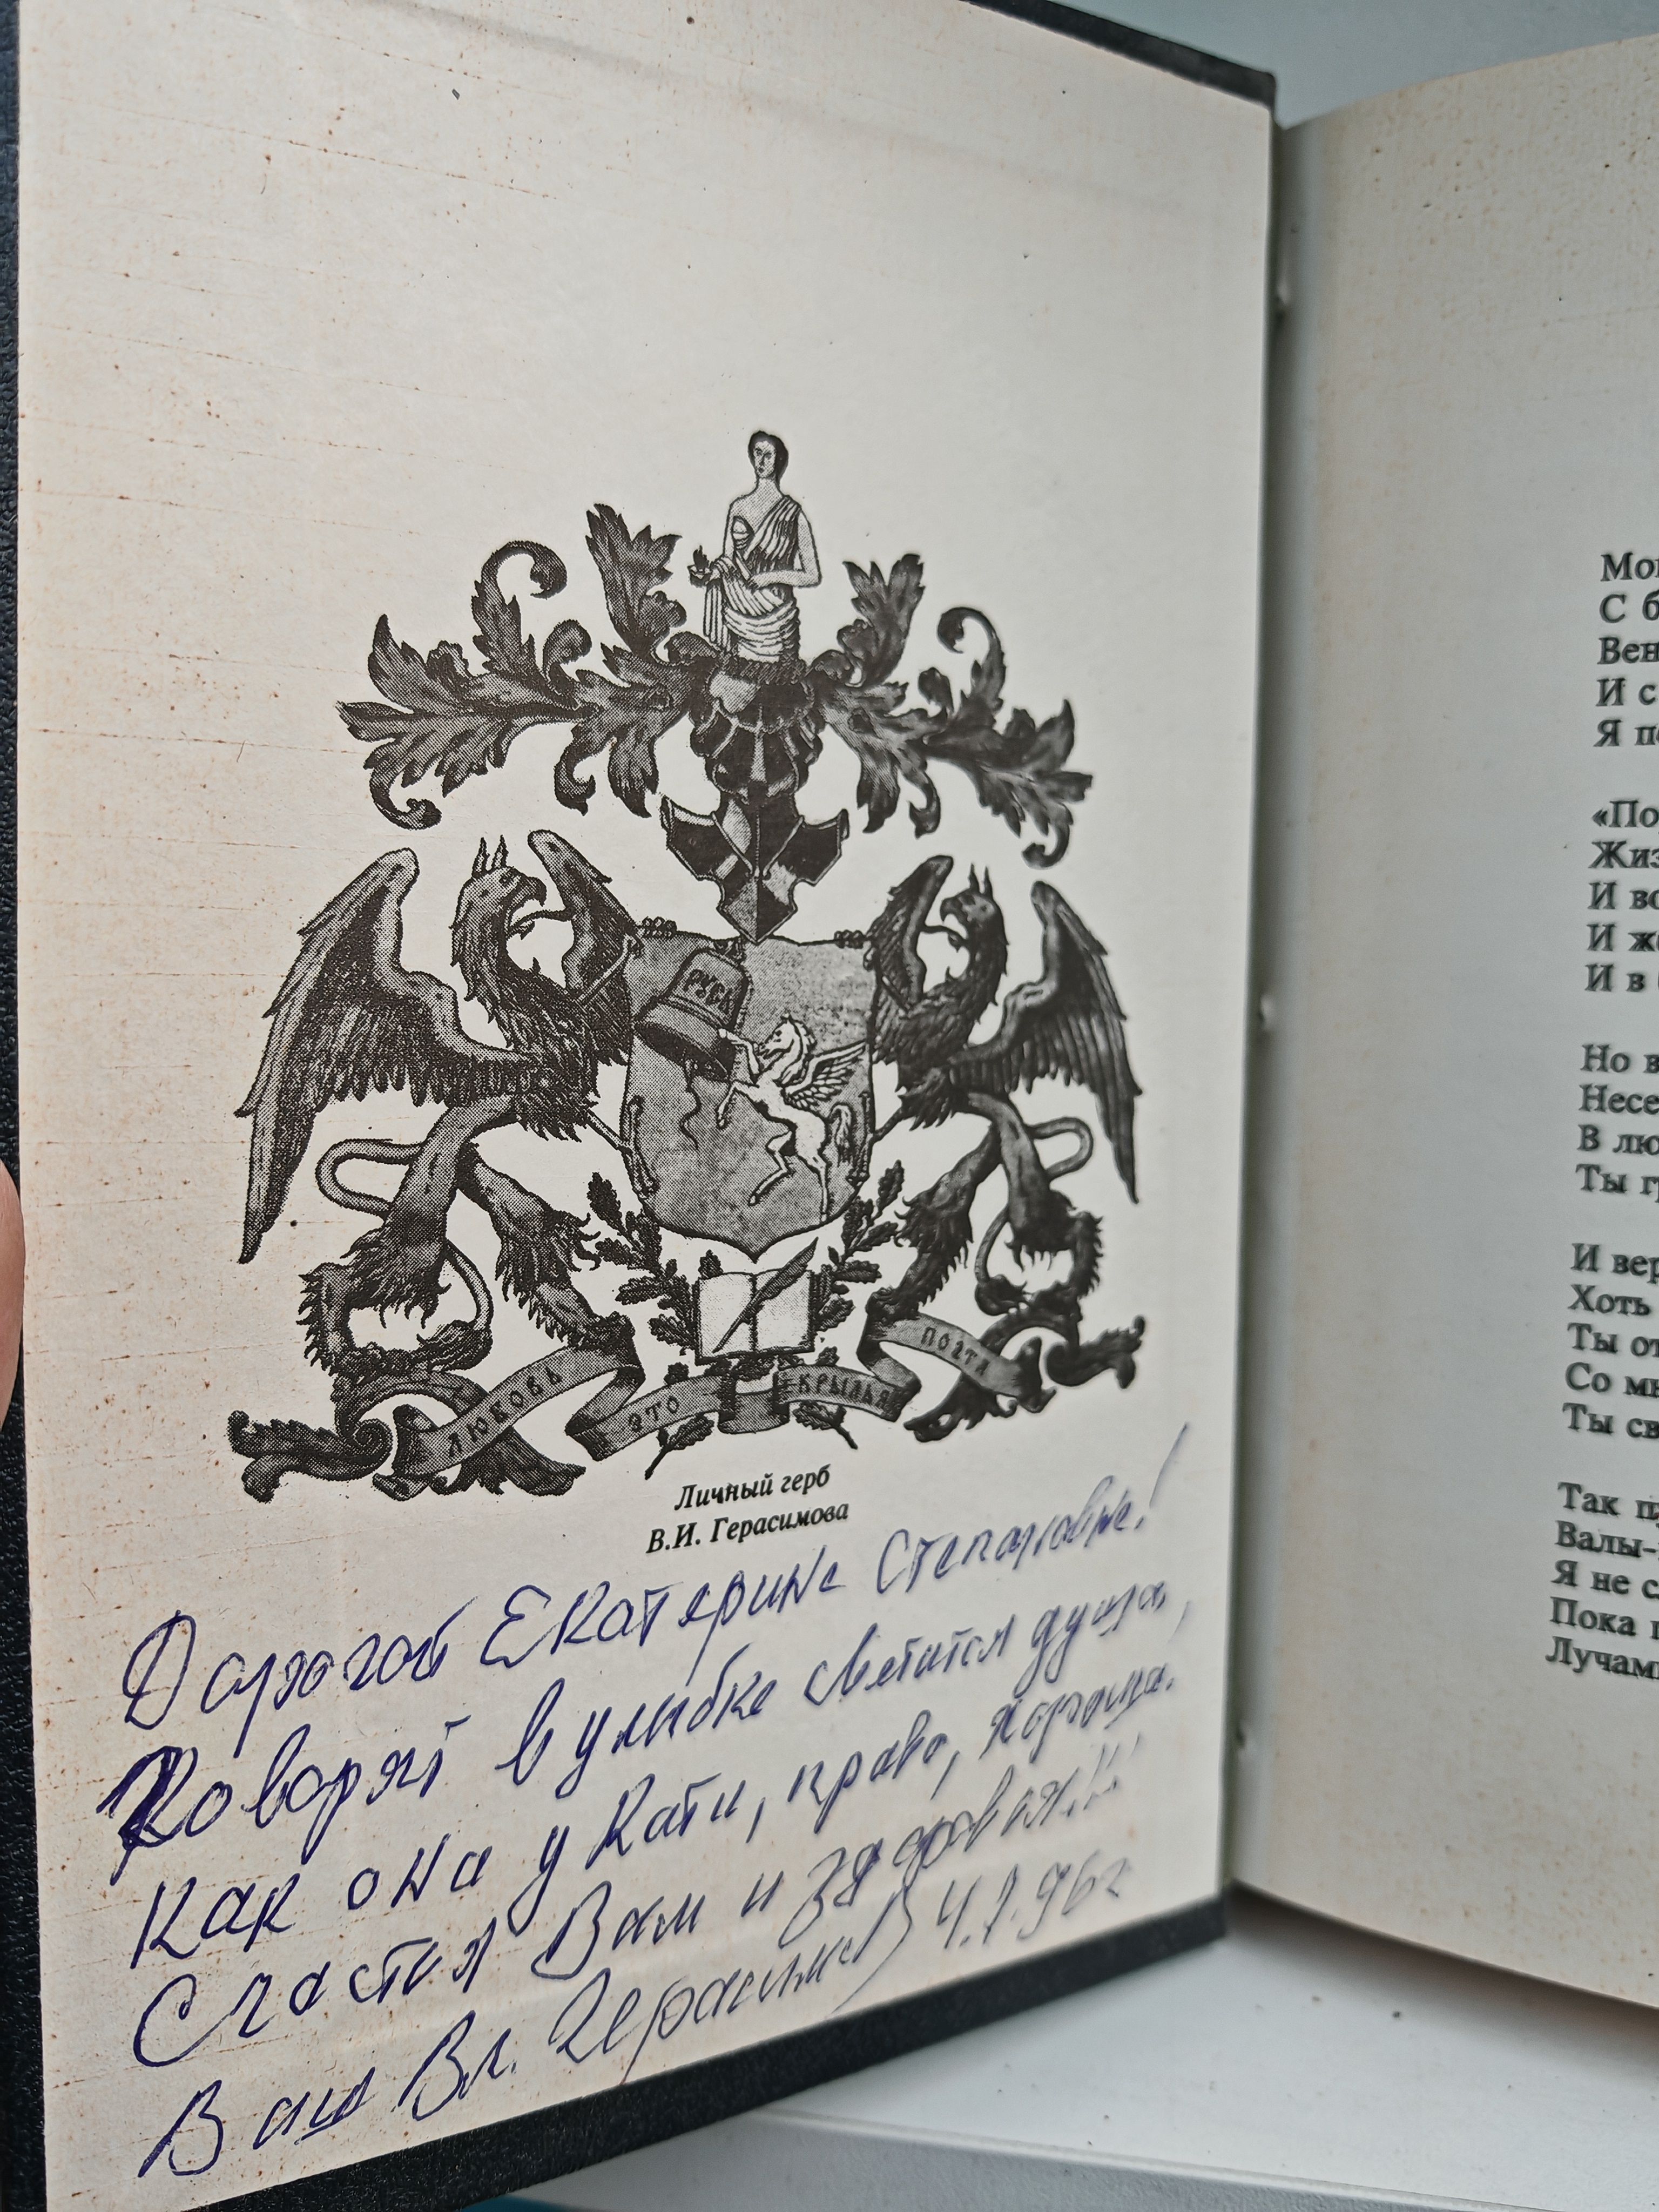 РУСЬ
ЛЮБОВЬ ЭТО КРЫЛЬЯ ПОЭТА
Личный герб
В.И. Герасимова
Дорогой Екатерине Степановне!
Говорят в улыбке светится душа,
Как она у Кати, право, хороша.
Счастья Вам и здоровья!!!
Ваш Вл. Герасимов 4.7.96г
Мо
С б
Вен
И с
Я п
«По
Жиз
И во
И ж
И в
Но в
Несе
В лю
Ты г
И вер
Хоть
Ты от
Со мн
Ты св
Так п
Валы-
Я не с
Пока
Лучам